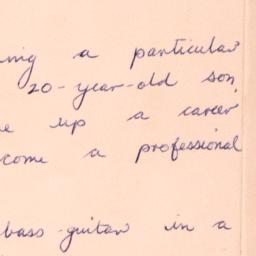 ing a particular
20-year-old son,
e up a career
come a professional
bass-guitar in a